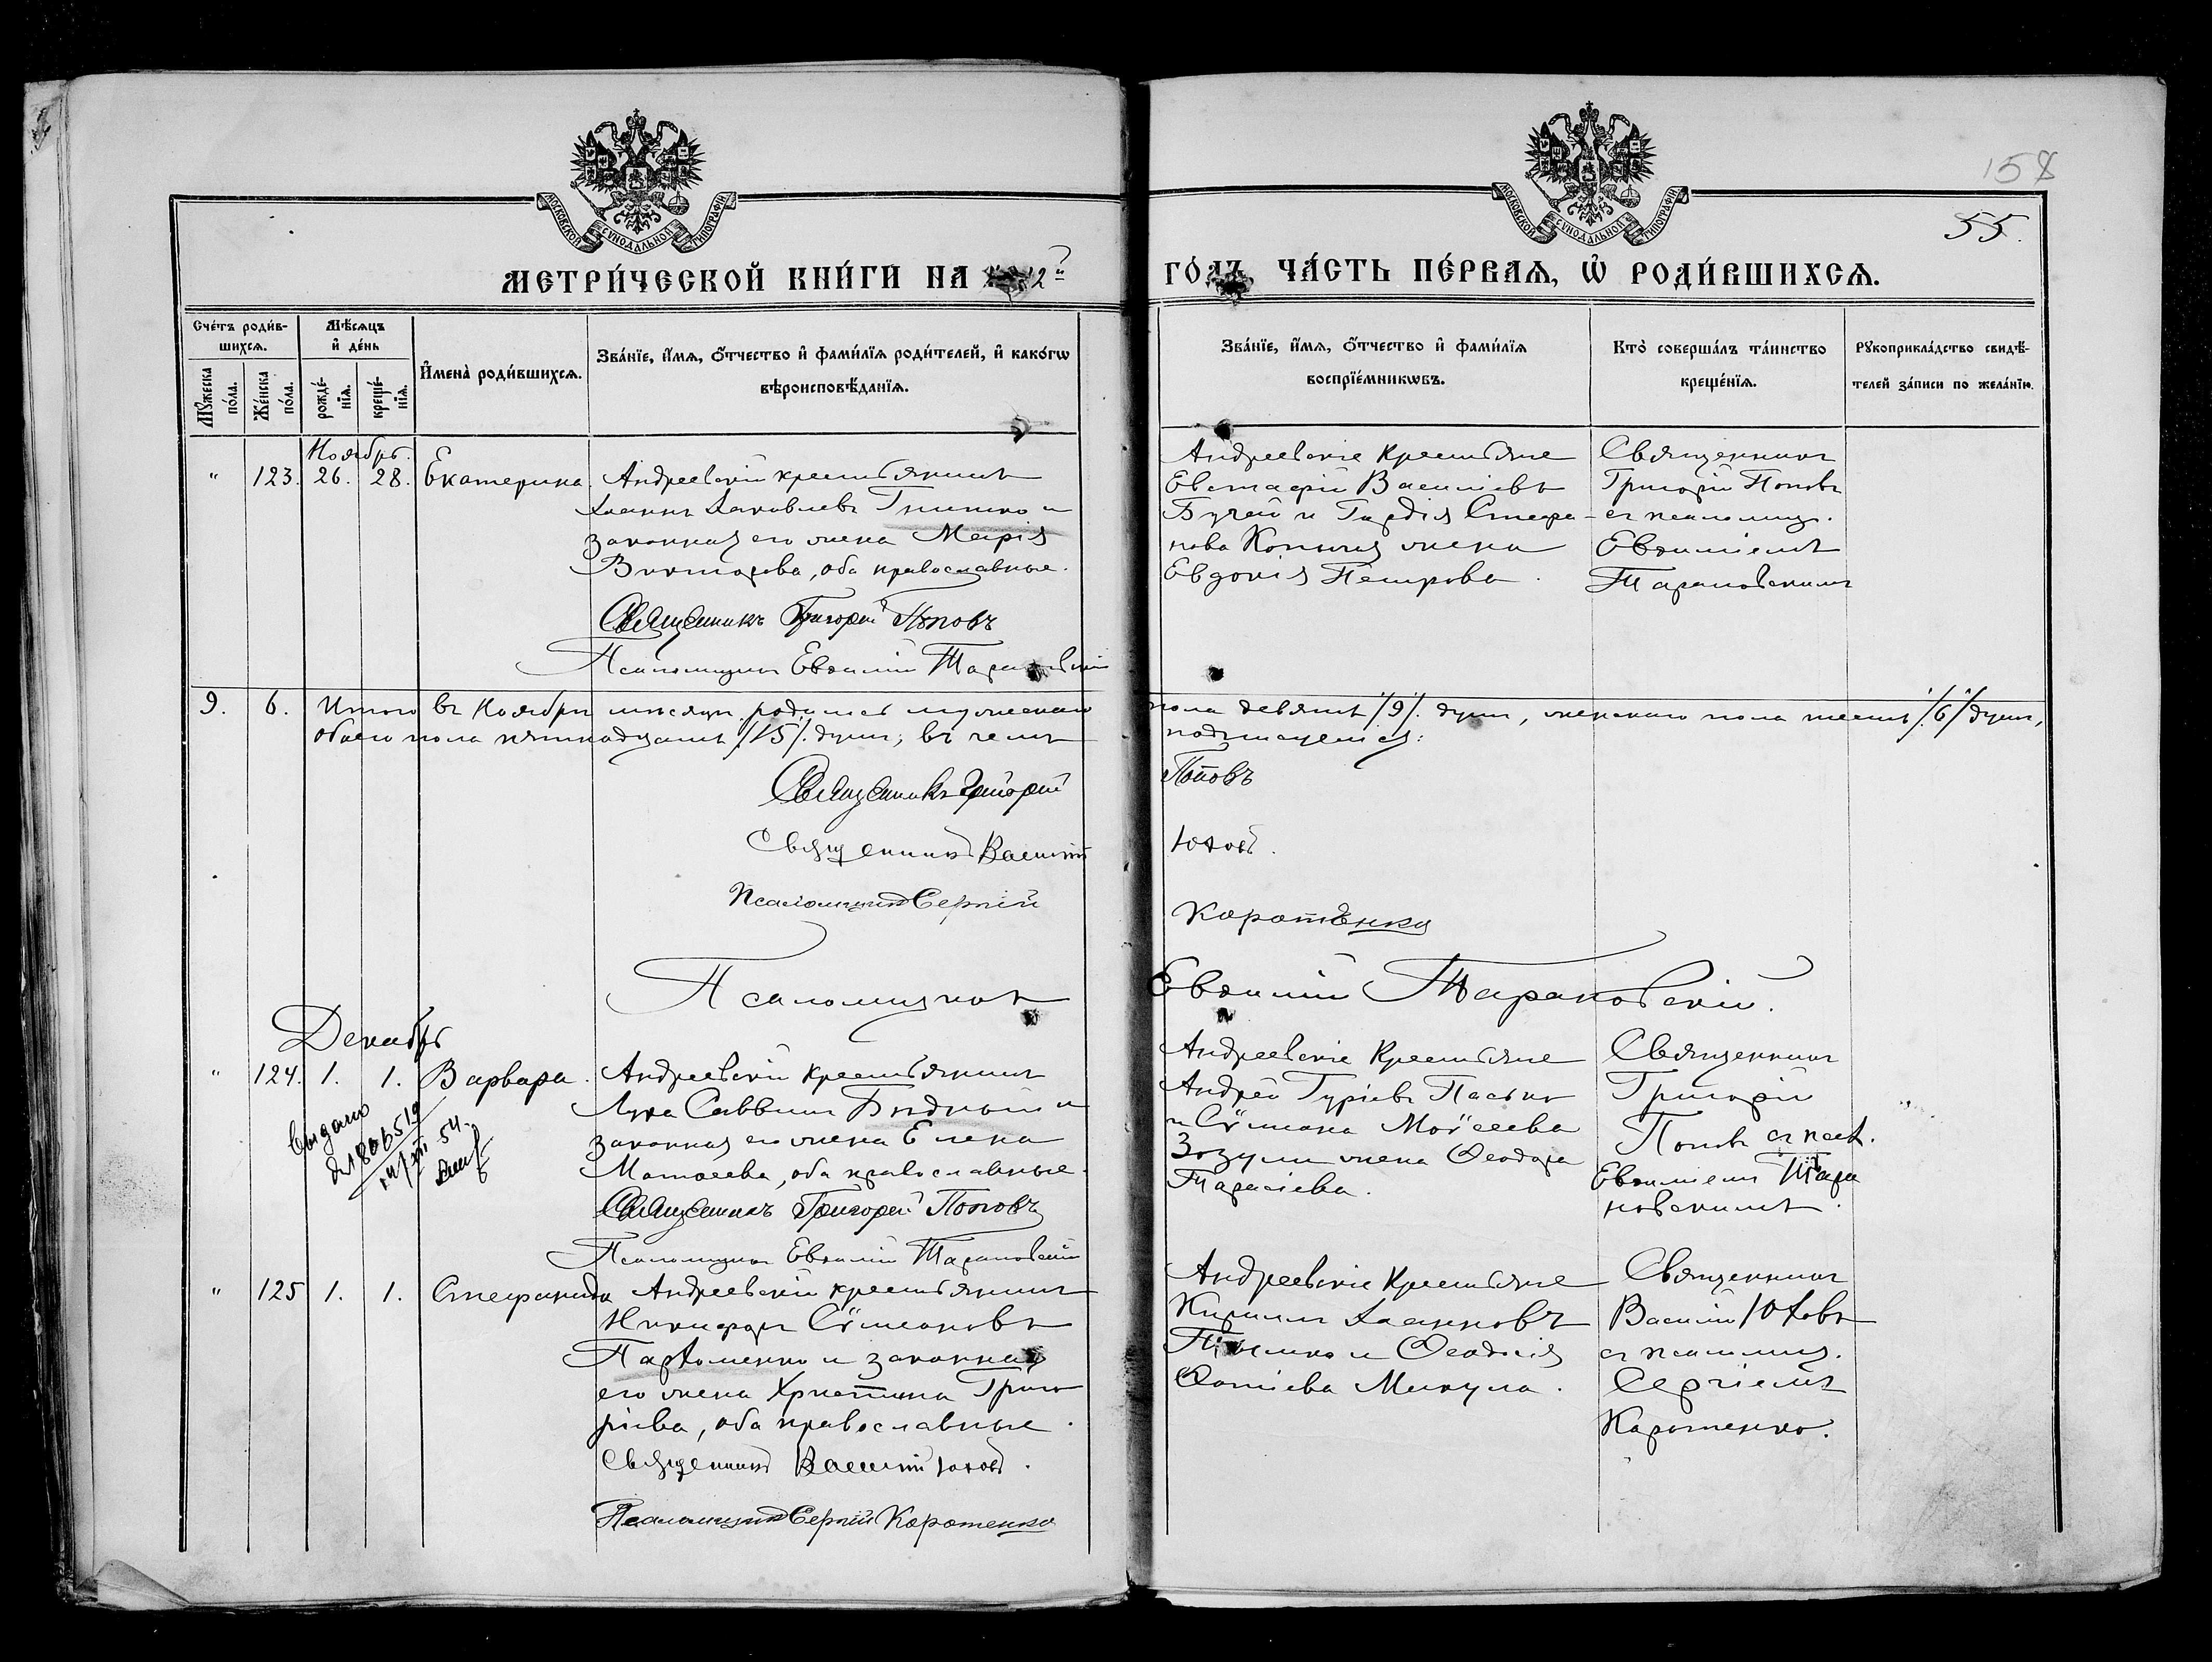 МОСКОВСКОЙ СѴНОДАЛЬНОЙ ТИПОГРАФІИ
МОСКОВСКОЙ СѴНОДАЛЬНОЙ ТИПОГРАФІИ
158
55.
МЕТРИ́ЧЕСКОЙ КНИ́ГИ НА 12
ГО́ДЪ ЧА́СТЬ ПЕ́РВАѦ, Ѡ҆ РОДИ́ВШИХСѦ.
Сче́тъ роди́в-
шихсѧ.
Мѣ́сѧцъ
и҆ де́нь
Мꙋ́жеска
по́ла.
Же́нска
по́ла.
рожде́-
нїѧ.
креще́-
нїѧ.
И҆мена̀ роди́вшихсѧ.
Зва́нїе, и҆́мѧ, ѻ҆́тчество и҆ фами́лїѧ роди́телей, и҆ како́гѡ
вѣроисповѣ́данїѧ.
Зва́нїе, и҆́мѧ, ѻ҆́тчество и҆ фами́лїѧ
воспрїе́мникѡвъ.
Кто̀ соверша́лъ та́инство
креще́нїѧ.
Рꙋкоприкла́дство свидѣ́-
телей за́писи по жела́нїю.
Ноябрь.
" 123. 26. 28. Екатерина.
Андреевскій крестьянинъ
Іоаннъ Іаковлевъ и
законная его жена Марія
Викторова, оба православные.
Священникъ Григорій Поповъ
Псаломщикъ Евѳимій Тарановскій
Андреевскіе крестьяне
Евстафій Василіевъ
и Стефа-
нова жена
Евдокія Петрова.
Священникъ
Григорій Поповъ
съ псаломщ.
Евѳиміемъ
Тарановскимъ
9. 6. Итого въ Ноябрѣ мѣсяцѣ родилось мужескаго пола девять /9/ душъ, женскаго пола шесть /6/ душъ,
обоего пола пятнадцать /15/ душъ; въ чемъ подписуемся:
Священникъ Григорій Поповъ
Священникъ Василій Юховъ.
Псаломщикъ Сергій Коротенко
Псаломщикъ Евѳимій Тарановскій.
Декабрь
" 124. 1. 1. Варвара.
Андреевскій крестьянинъ
Лука Саввинъ Бѣдный и
законная его жена Елена
Матѳеева, оба православные.
Священникъ Григорій Поповъ
Псаломщикъ Евѳимій Тарановскій
Андреевскіе крестьяне
Андрей Гуріевъ Пасько
и Сѵмеона Моѵсеева
Зозули жена Ѳеодора
Тарасіева.
Священникъ
Григорій
Поповъ съ псал.
Евѳиміемъ Тара
новскимъ.
Выдано
1806519
14/XII 54.
" 125 1. 1. Стефанида
Андреевскій крестьянинъ
Никифоръ Сѵмеоновъ
Пархоменко и законная
его жена Христина Григо
ріева, оба православные.
Священникъ Василій Юховъ.
Псаломщикъ Сергій Коротенко
Андреевскіе крестьяне
Кириллъ Іоанновъ
и Ѳеодосія
Ѳотіева Микула.
Священникъ
Василій Юховъ
съ псаломщ.
Сергіемъ
Коротенко.